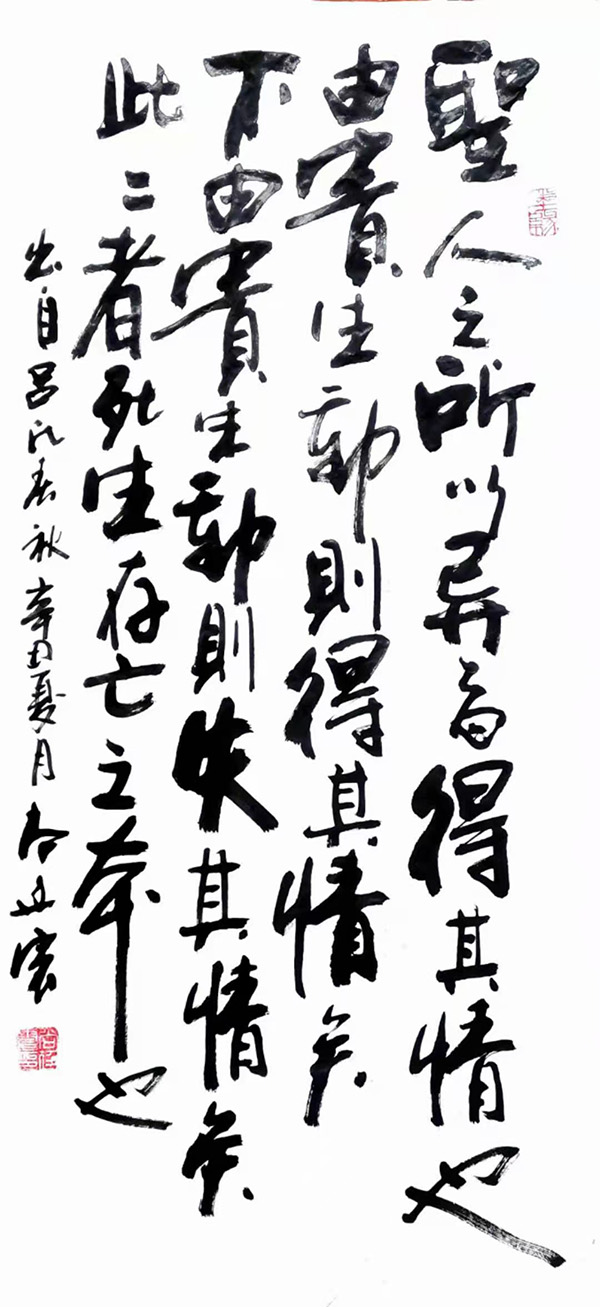 聖人之所以異者得其情也
由貴生動則得其情矣
不由貴生動則失其情矣
此二者死生存亡之本也
出自呂氏春秋辛丑夏月